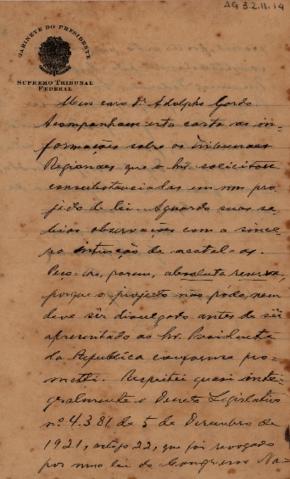 AG 3.2.11.14
GABINETE DO PRESIDENTE
SUPREMO TRIBUNAL
FEDERAL
Meu caro Dr. Adolpho Gordo
Acompanham esta carta as in-
formações sobre os tribunaes
Regionaes que o Sr. solicitou
consubstanciadas em um pro-
jecto de lei. Aguardo suas sa-
bias observações com a since-
ra intenção de acatal-as.
Peço-lhe, porem, absoluta reserva,
porque o projecto não póde, nem
deve sêr divulgado antes de sêr
apresentado ao Sr. Presidente
da Republica conforme pro-
metti. Respeitei quasi inte-
gralmente o Decreto Legislativo
nº. 4.381 de 5 de Dezembro de
1921, artigo 22, que foi revogado
por uma lei do Congresso Na-